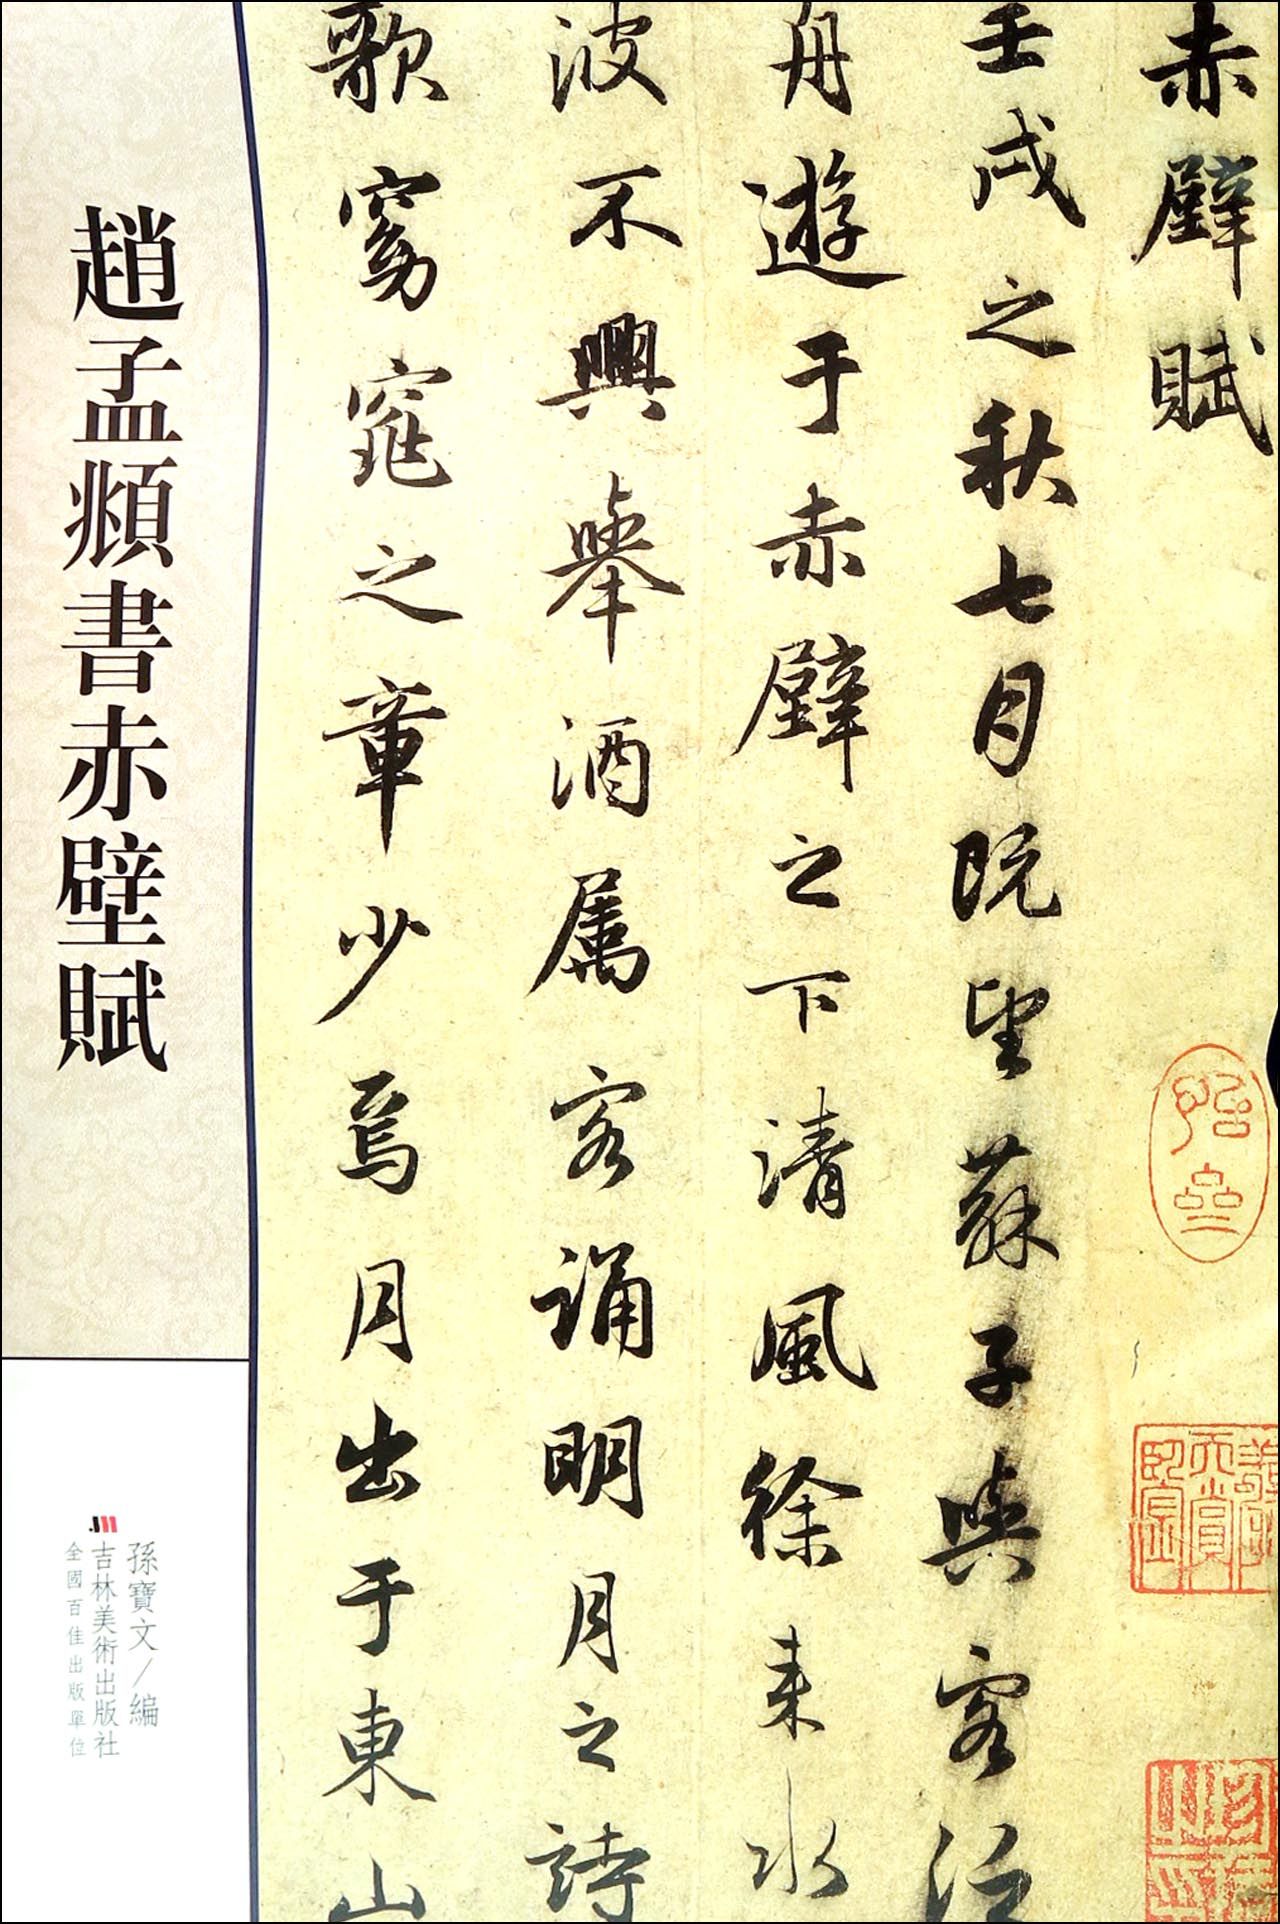 赤壁賦
壬戌之秋七月既望蘇子與客泛
舟遊于赤壁之下清風徐来水
波不興舉酒屬客誦明月之詩
歌窈窕之章少焉月出于東山
趙孟頫書赤壁賦
孫寶文/編
吉林美術出版社
全國百佳出版單位